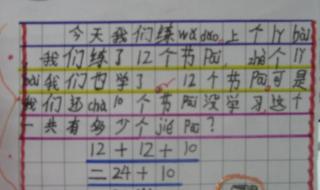 今天我们练wǔdǎo，上个lǐ bài
我们练了12个节Pāi，zhè个lǐ
bài我们又学了12个节Pāi可是
我们还chà 10个节Pāi没学习这个
一共有多少个jié Pāi？
12＋12＋10
＝24＋10